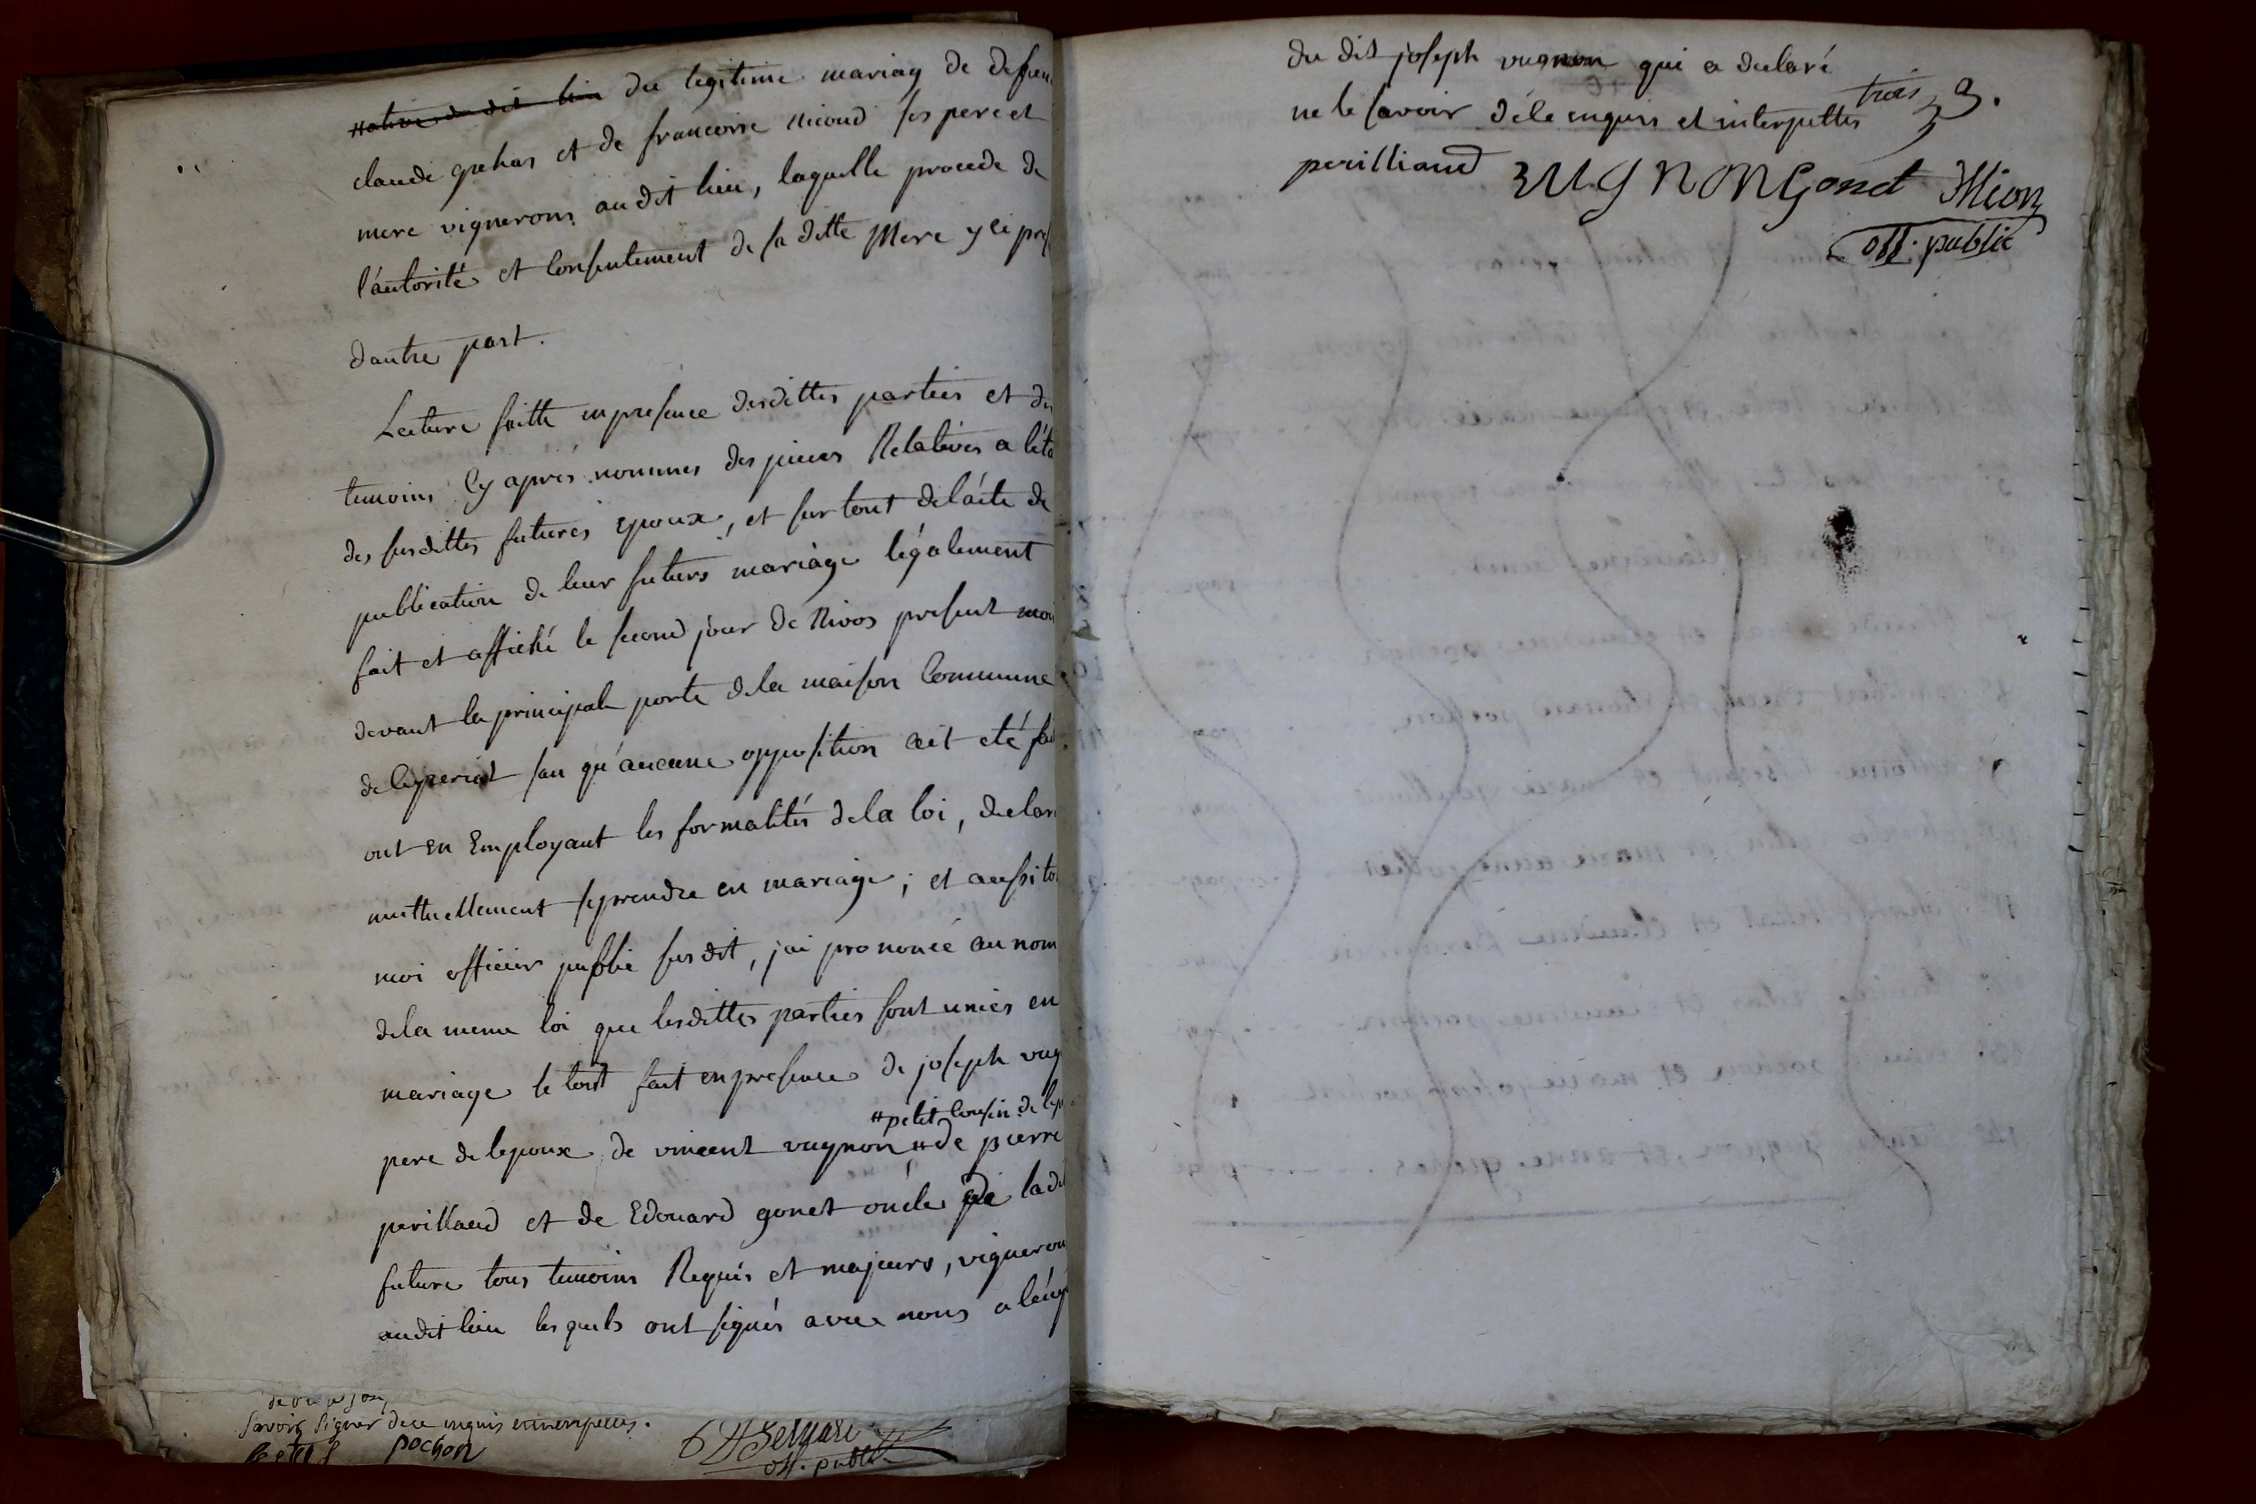 native du dit lieu du legitime mariag de defun
claude grehas et de francoise nicoud ses pere et
mere vignerons au dit lieu, laquelle procede de
l'autorité et consentement de sa ditte Mere y ci pres
dautre part.
Lecture faitte en presence desdittes parties et de
temoins Cy aprés nommes des pieces Relatives a léta
des susdittes futures epoux, et sur tout de lácte de
publication de leur futurs mariáge légalement
fait et affiché le second jour de Nivos present moi
devant la principale porte de la maison Commune
de leyrerist san qu'aucune opposition ait eté fai
ont en Employant les formalités de la loi, declar
muttuellement se prendre en mariage; et aussi to
moi officier public susdit, jai prononcé au nom
de la meme loi que lesdittes parties sont unies en
mariage le tout fait en presence de joseph vug
#petit cousin de lep
pere de lepoux de vincent vugnon # de pierre
perillaud et de Edouard gonet oncle de lad
future tous temoins Requis et majeurs, vigneron
audit lieu lesquels ont signés avec nous a léxep
savoir signer de ce enquis et interpelles.
pochon
off. public
du dit joseph vugnon qui a declaré
ne le savoir dé le enquis et interpelles trois
perilliaud vugnon Gonet Mion
off. public